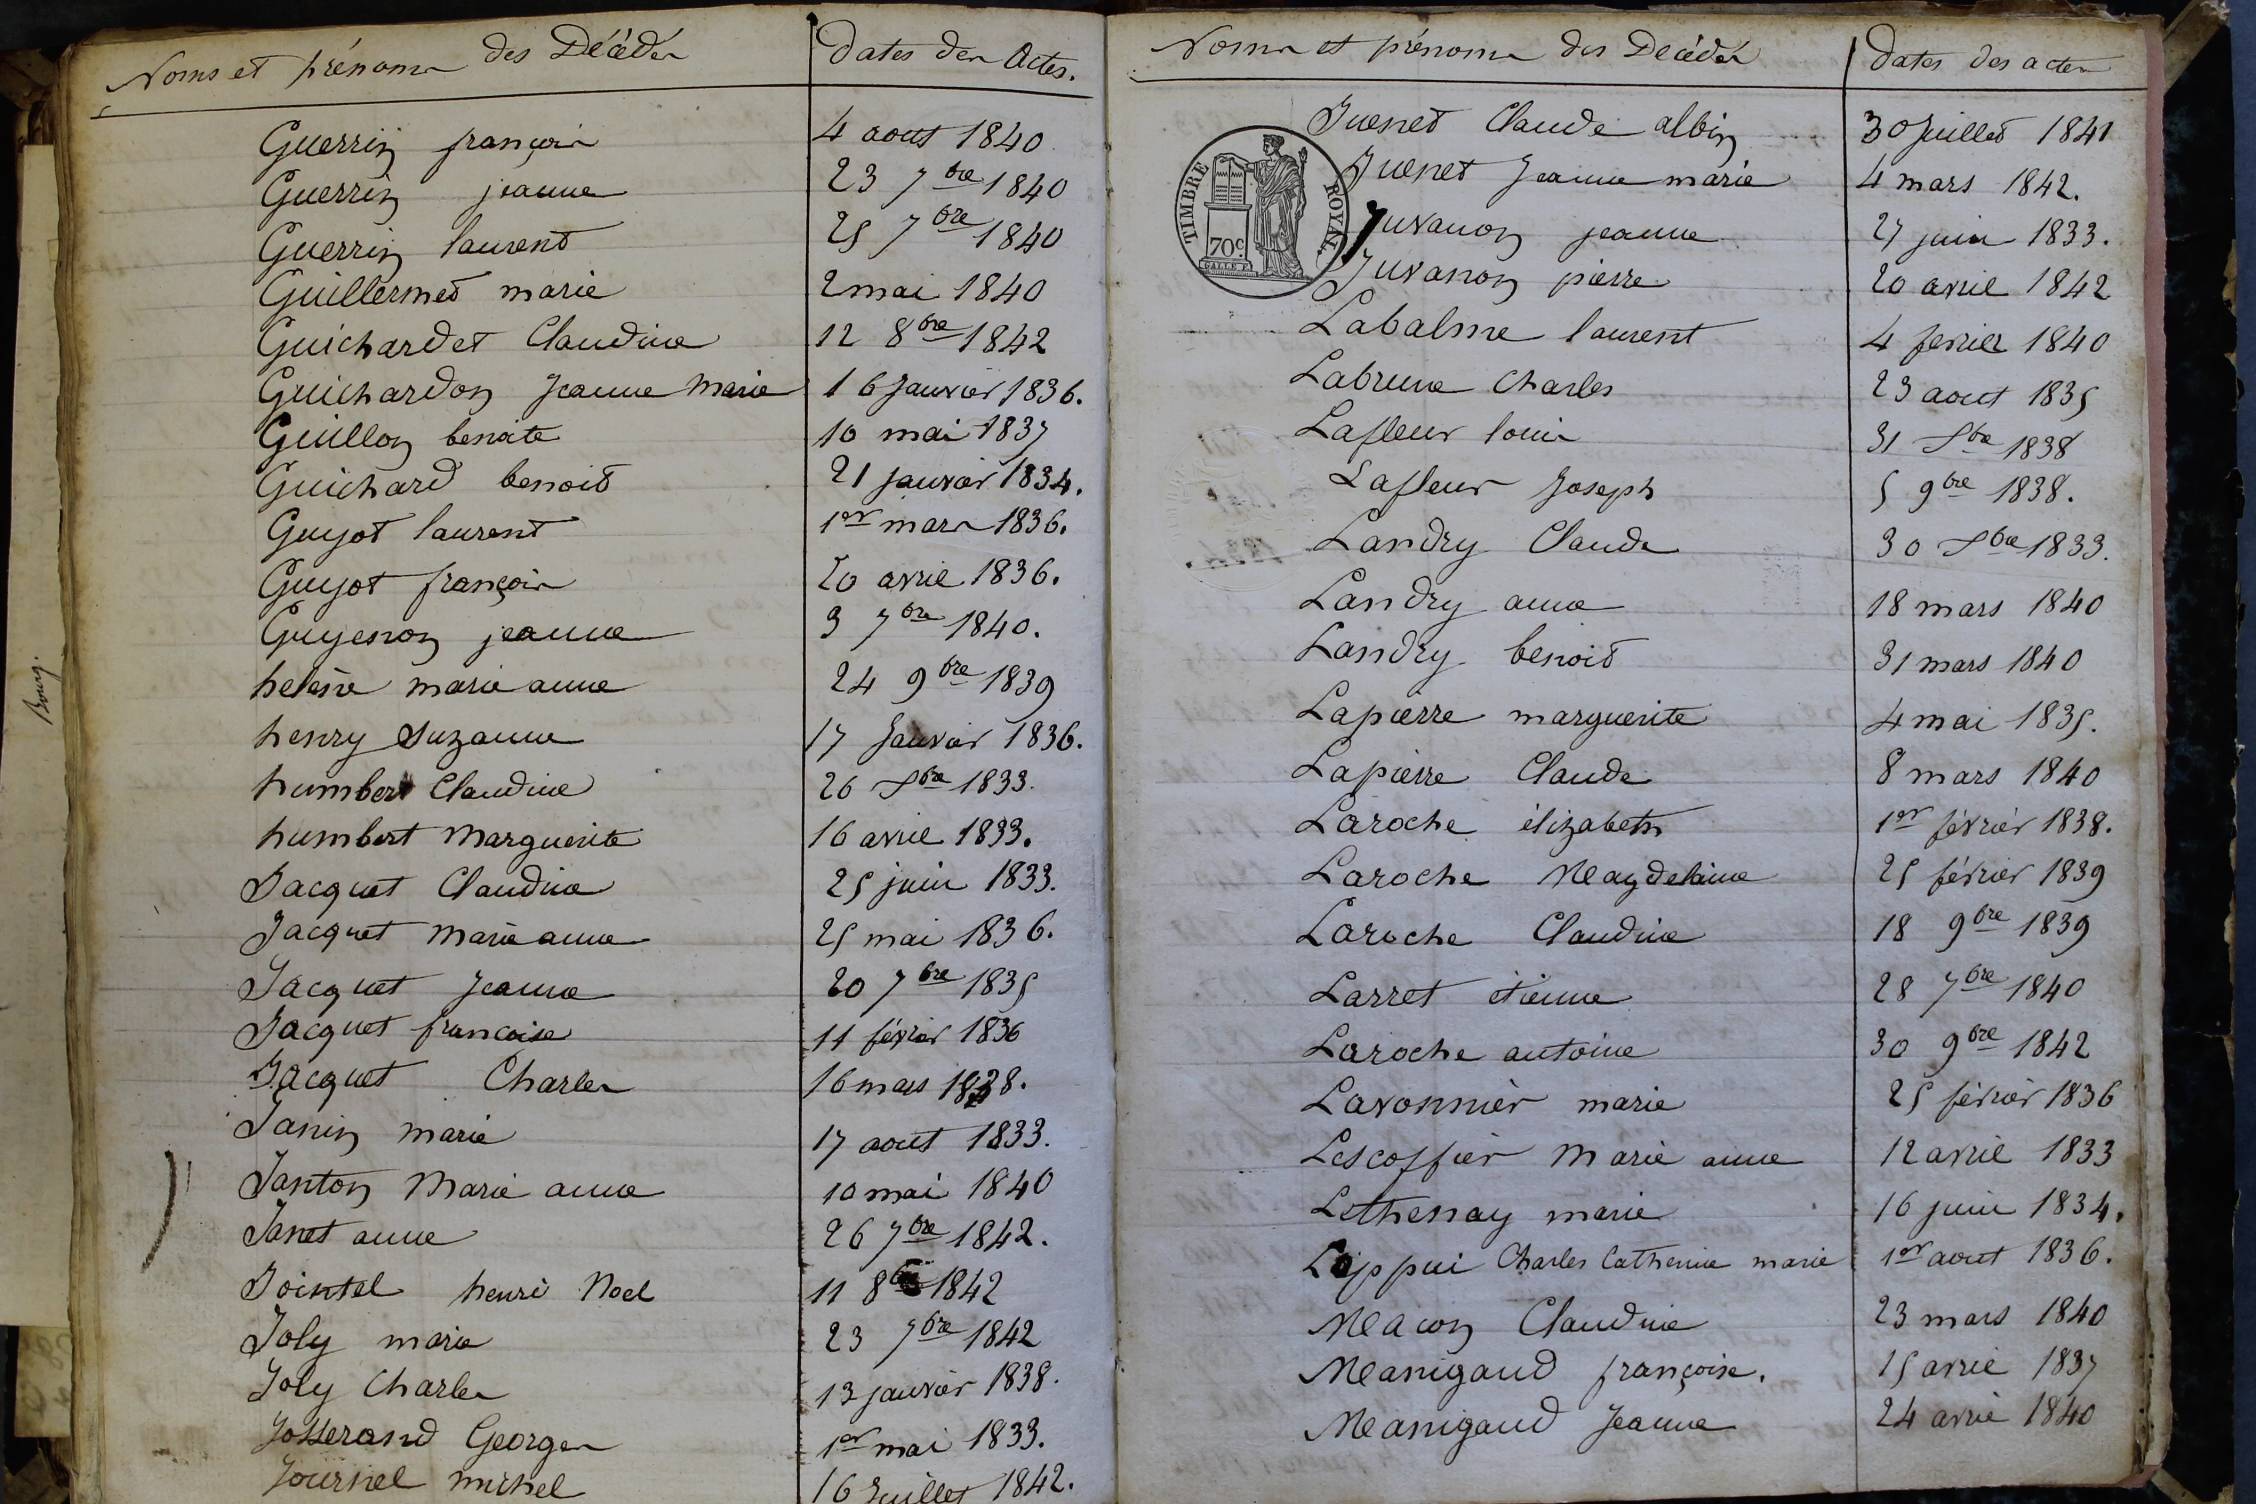 Noms et prénoms des Décédés Dates des Actes.
Guerrin françois 4 aout 1840
Guerrin jeanne 23 7bre 1840
Guerrin laurent 25 7bre 1840
Guillermet marie 2 mai 1840
Guichardet Claudine 12 8bre 1842
Guichardon Jeanne Marie 16 Janvier 1836.
Guillon benoite 10 mai 1837
Guichard benoit 21 janvier 1834.
Guyot laurent 1er mars 1836.
Guyot françois 20 avril 1836.
Guyenon jeanne 3 7bre 1840.
helene marie anne 24 9bre 1839
henry Suzanne 17 Janvier 1836.
humbert Claudine 26 Xbre 1833.
humbert Marguerite 16 avril 1833.
Jacquet Claudine 25 juin 1833.
Jacquet Marie anne 25 mai 1836.
Jacquet Jeanne 20 7bre 1835
Jacquet francoise 11 février 1836
Jacquet Charles 16 mars 1838.
Janin marie 17 aout 1833.
Janton Marie anne 10 mai 1840
Janet anne 26 7bre 1842.
Jointel henri Noel 11 8bre 1842
Joly marie 23 7bre 1842
Joly Charles 13 janvier 1838.
Josserand Georges 1er mai 1833.
Journel michel 16 Juillet 1842.
Bourg.
Noms et prénoms des Décédés Dates des actes
Juenet Claude albin 30 Juillet 1841
Juenet Jeanne marie 4 mars 1842.
Juvanon jeanne 27 juin 1833.
Juvanon pierre 20 avril 1842
TIMBRE ROYAL
70c
Labalme laurent 4 fevrier 1840
Labrune Charles 23 aout 1835
Lafleur louis 31 Xbre 1838
Lafleur Joseph 5 9bre 1838.
Landry Claude 30 Xbre 1833.
Landry anne 18 mars 1840
Landry benoit 31 mars 1840
Lapierre marguerite 4 mai 1835.
Lapierre Claude 8 mars 1840
Laroche élizabeth 1er février 1838.
Laroche Magdelaine 25 février 1839
Laroche Claudine 18 9bre 1839
Larret étienne 28 7bre 1840
Laroche antoine 30 9bre 1842
Lavonnier marie 25 février 1836
Lescoffier Marie anne 12 avril 1833
Lethenay marie 16 juin 1834.
Lippui Charles Catherine marie 1er aout 1836.
Macon Claudine 23 mars 1840
Manigaud françoise. 15 avril 1837
Manigaud Jeanne 24 avril 1840